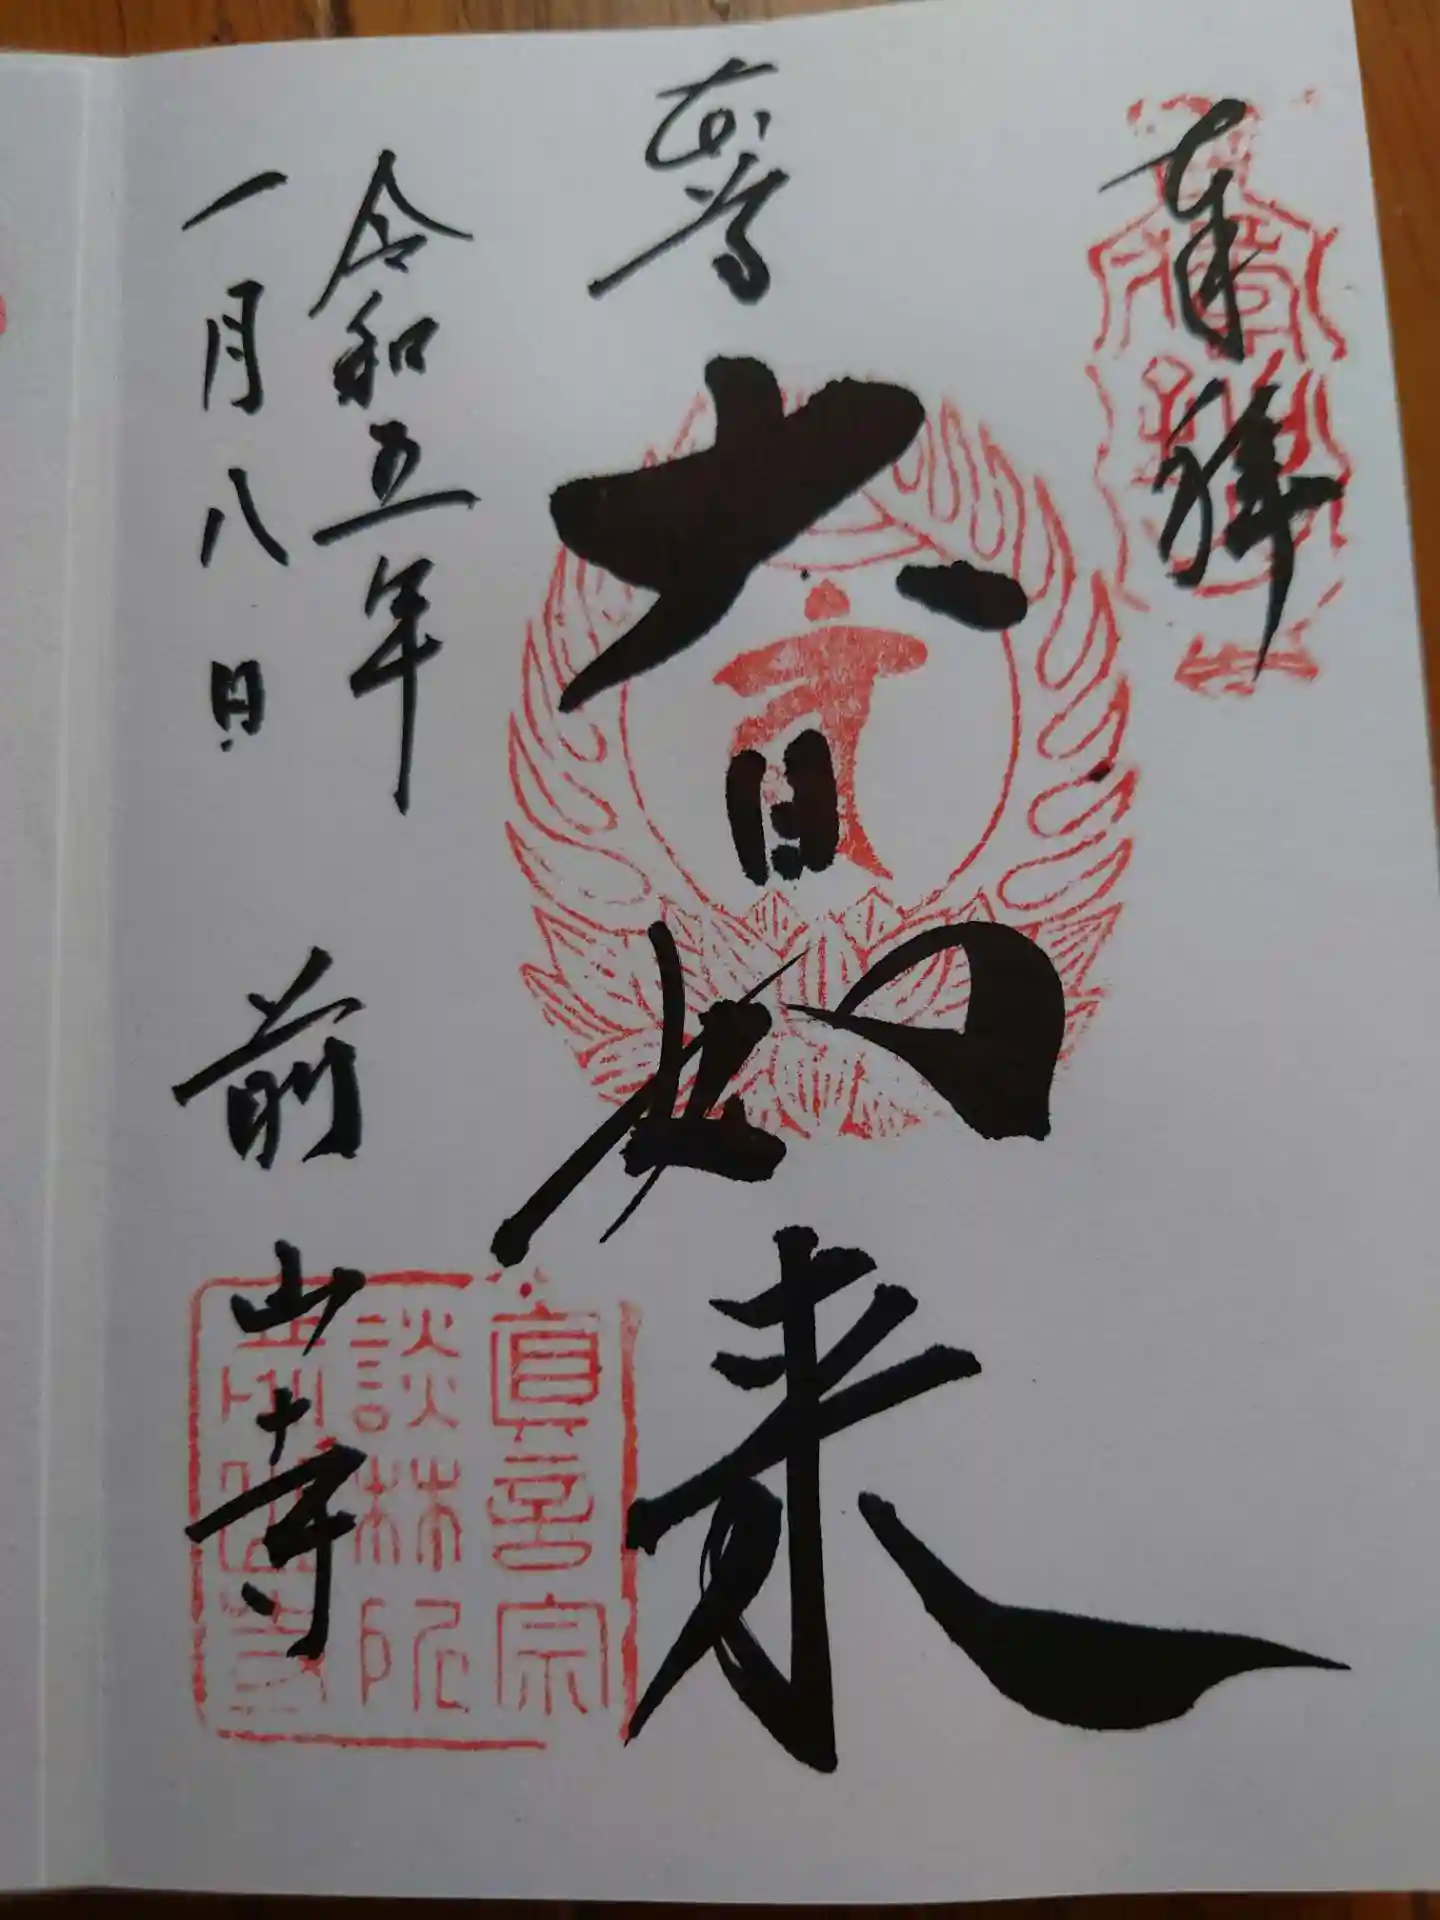 奉拝
本尊
大日如来
令和五年
一月八日
前山寺
真言宗
談林院
前山寺